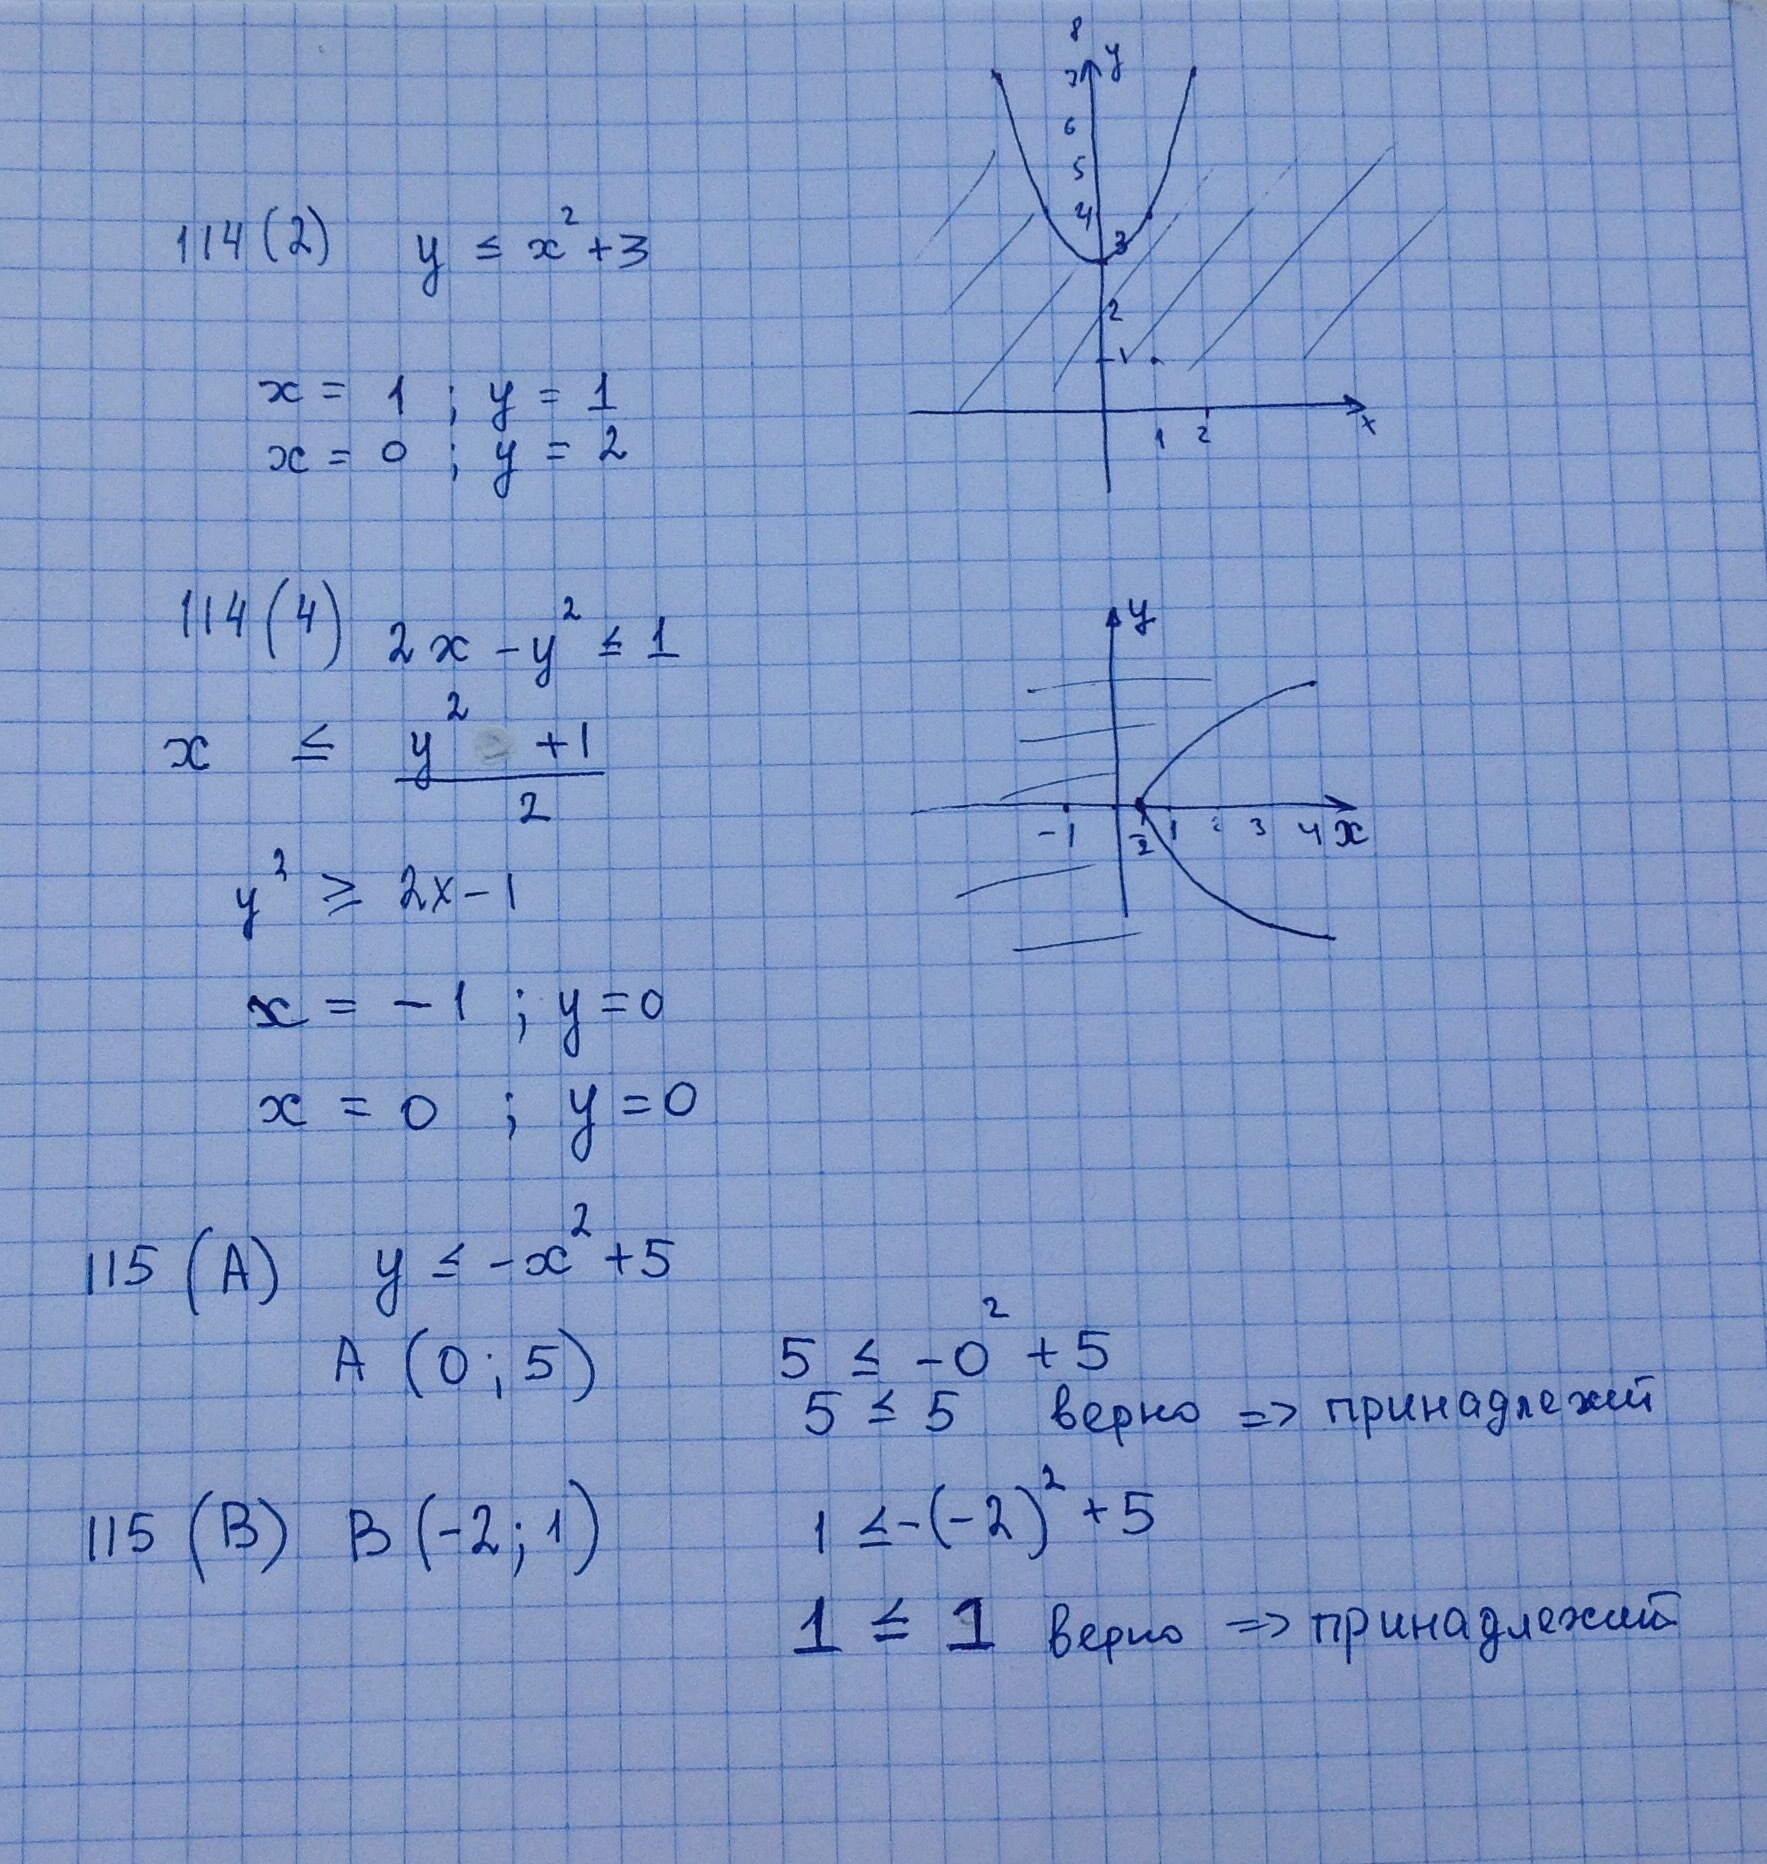 8
7 y
6
5
4
3
2
1
1 2 x
114(2) y ≤ x² + 3
x = 1 ; y = 1
x = 0 ; y = 2
114(4) 2x - y² ≤ 1
x ≤ (y² + 1)/2
y² ≥ 2x - 1
x = -1 ; y = 0
x = 0 ; y = 0
y
-1 1/2 1 2 3 4 x
115 (A) y ≤ -x² + 5
A (0 ; 5) 5 ≤ -0² + 5
5 ≤ 5 верно => принадлежит
115 (B) B (-2 ; 1) 1 ≤ -(-2)² + 5
1 ≤ 1 верно => принадлежит